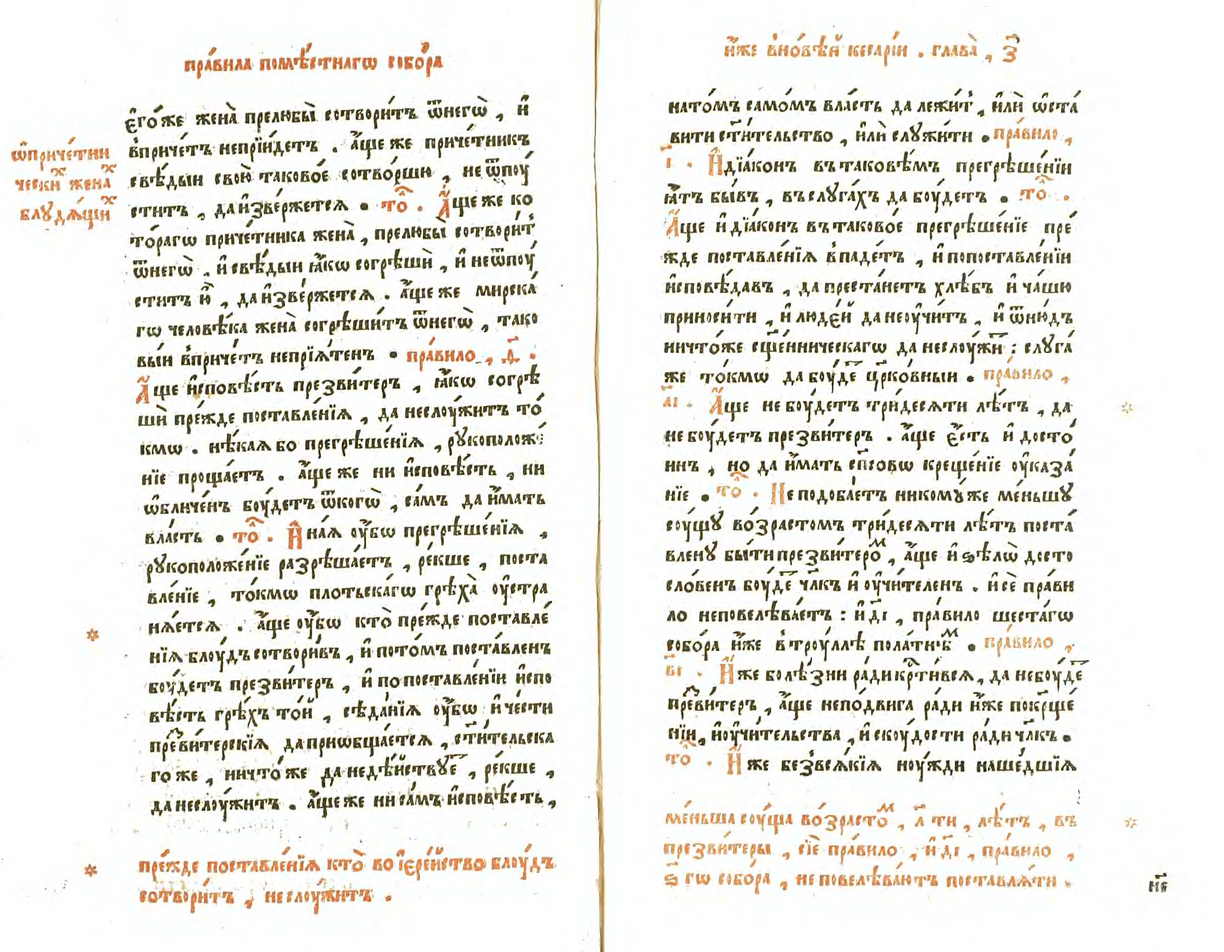 пра́вила помѣ́стнагѡ собо́ра
ѡ҆приче́тни
чески̑х жена̑х
блудѧ́щих
є҆го́же жена̀ прелюбы̀ сотвори́тъ ѿнегѡ̀, и҆
впри́четъ непрїи́детъ. а҆́щеже приче́тникъ
свѣ́дыи свою̀ таково́е сотво́ршю, не ѿпоу́
ститъ, даи҆зве́ржетсѧ. то́л. А҆́щеже ко
то́рагѡ приче́тника жена̀, прелюбы̀ сотвори́т
ѿнегѡ̀, и҆ свѣ́дыи ꙗ҆́кѡ согрѣшѝ, и҆ неѿпоу́
ститъ ю҆̀, даи҆зве́ржетсѧ. а҆́щеже мирска́
гѡ человѣ́ка жена̀ согрѣши́тъ ѿнегѡ̀, тако
выи впри́четъ непрїѧ́тенъ. пра́вило, д҃.
А҆́ще и҆сповѣ́сть презви́теръ, ꙗ҆́кѡ согрѣ
шѝ пре́жде поставле́нїѧ, да неслоу́житъ то́
кмѡ. нѣ́каѧбо прегрѣше́нїѧ, рукополож́е
нїе проща́етъ. а҆́щеже ни и҆сповѣ́сть, ни
ѡ҆бличе́нъ боу́детъ ѿкогѡ̀, са́мъ да и҆́мать
вла́сть. то́л. И҆на́ѧ оу҆̀бѡ прегрѣше́нїѧ,
рукоположе́нїе разрѣша́етъ, ре́кше, поста
вле́нїе, то́кмѡ плотьска́гѡ грѣха̀ оу҆стра
нѧ́етсѧ. а҆́ще оу҆̀бѡ кто̀ пре́жде поставле́
нїѧ блоу́дъ сотвори́въ, и҆ пото́мъ поста́вленъ
боу́детъ презви́теръ, и҆ попоставле́нїи и҆спо
вѣ́сть грѣ́хъ то́и, сѣда́нїѧ оу҆̀бѡ и҆ че́сти
пре́витерскїѧ даприѡбща́етсѧ, ст҃и́тельска
гоже, ничто́же даднедѣ́йствуе, ре́кше,
данеслоу́житъ. а҆́щеже ни са́мъ и҆сповѣ́сть,
пре́жде поставле́нїѧ кто̀ во і҆ере́йство блоу́дъ
сотвори́тъ, неслоу́житъ.
и҆́же вно́вѣй кеса́рїи. глава̀, з҃
нато́мъ само́мъ вла́сть да лежи́т, и҆лѝ ѡ҆ста́
вити ст҃и́тельство, и҆лѝ слу́жити. пра́вило,
і҃. И҆ дїа́конъ въ тако́вѣмъ прегрѣше́нїи
ꙗ҆́тъ бы́въ, въ слуга́хъ да боу́детъ. то́л.
А҆́ще и҆ дїа́конъ въ таково́е прегрѣше́нїе пре́
жде поставле́нїѧ впаде́тъ, и҆ попоставле́нїи
и҆сповѣ́давъ, да преста́нетъ хлѣ́бъ и҆ ча́шю
приноси́ти, и҆ люде́й данеоу́читъ, и҆ ѿню́дъ
ничто́же сщ҃е́нническагѡ да неслоу́жи: слуга́
же то́кмѡ да боу́де цр҃ко́вныи. пра́вило,
а҃і. А҆́ще не боу́детъ три́десѧти лѣ́тъ, да
не боу́детъ презви́теръ. а҆́ще є҆́сть и҆ досто́
инъ, но да и҆́мать сп҃со́вѡ кр҃ще́нїе оу҆каза́
нїе. то́л. Не подоба́етъ никому́же ме́ньшу
соу́щу во́зрастомъ три́десѧти лѣ́тъ поста́
влену бы́ти презви́теро́м, а҆́ще и҆ ѕѣлѡ̀ досто
сло́венъ боу́де чл҃къ и҆ оу҆чи́теленъ. и҆ сѐ пра́ви
ло неповелѣва́етъ: и҆ д҃і, пра́вило шеста́гѡ
собо́ра и҆́же в троу́ллѣ пола́тнѣм. пра́вило,
в҃і. И҆́же болѣ́зни ра́ди кр҃ти́всѧ, да небоу́де
пре́витеръ, а҆́ще неподви́га ра́ди и҆́же покр҃ще́
нїи, и҆оу҆чи́тельства, и҆ скоу́дости ра́ди чл҃къ.
то́л. И҆́же безвсѧ́кїѧ ноу́жди наше́дшїѧ
ме́ньша соу́ща во́зрасто́м, л҃ ти, лѣ́тъ, въ
презви́теры, сїѐ пра́вило, и҆ д҃і, пра́вило,
ѕ҃ гѡ собо́ра, не повелѣва́ютъ поставлѧ́ти.
н҃є